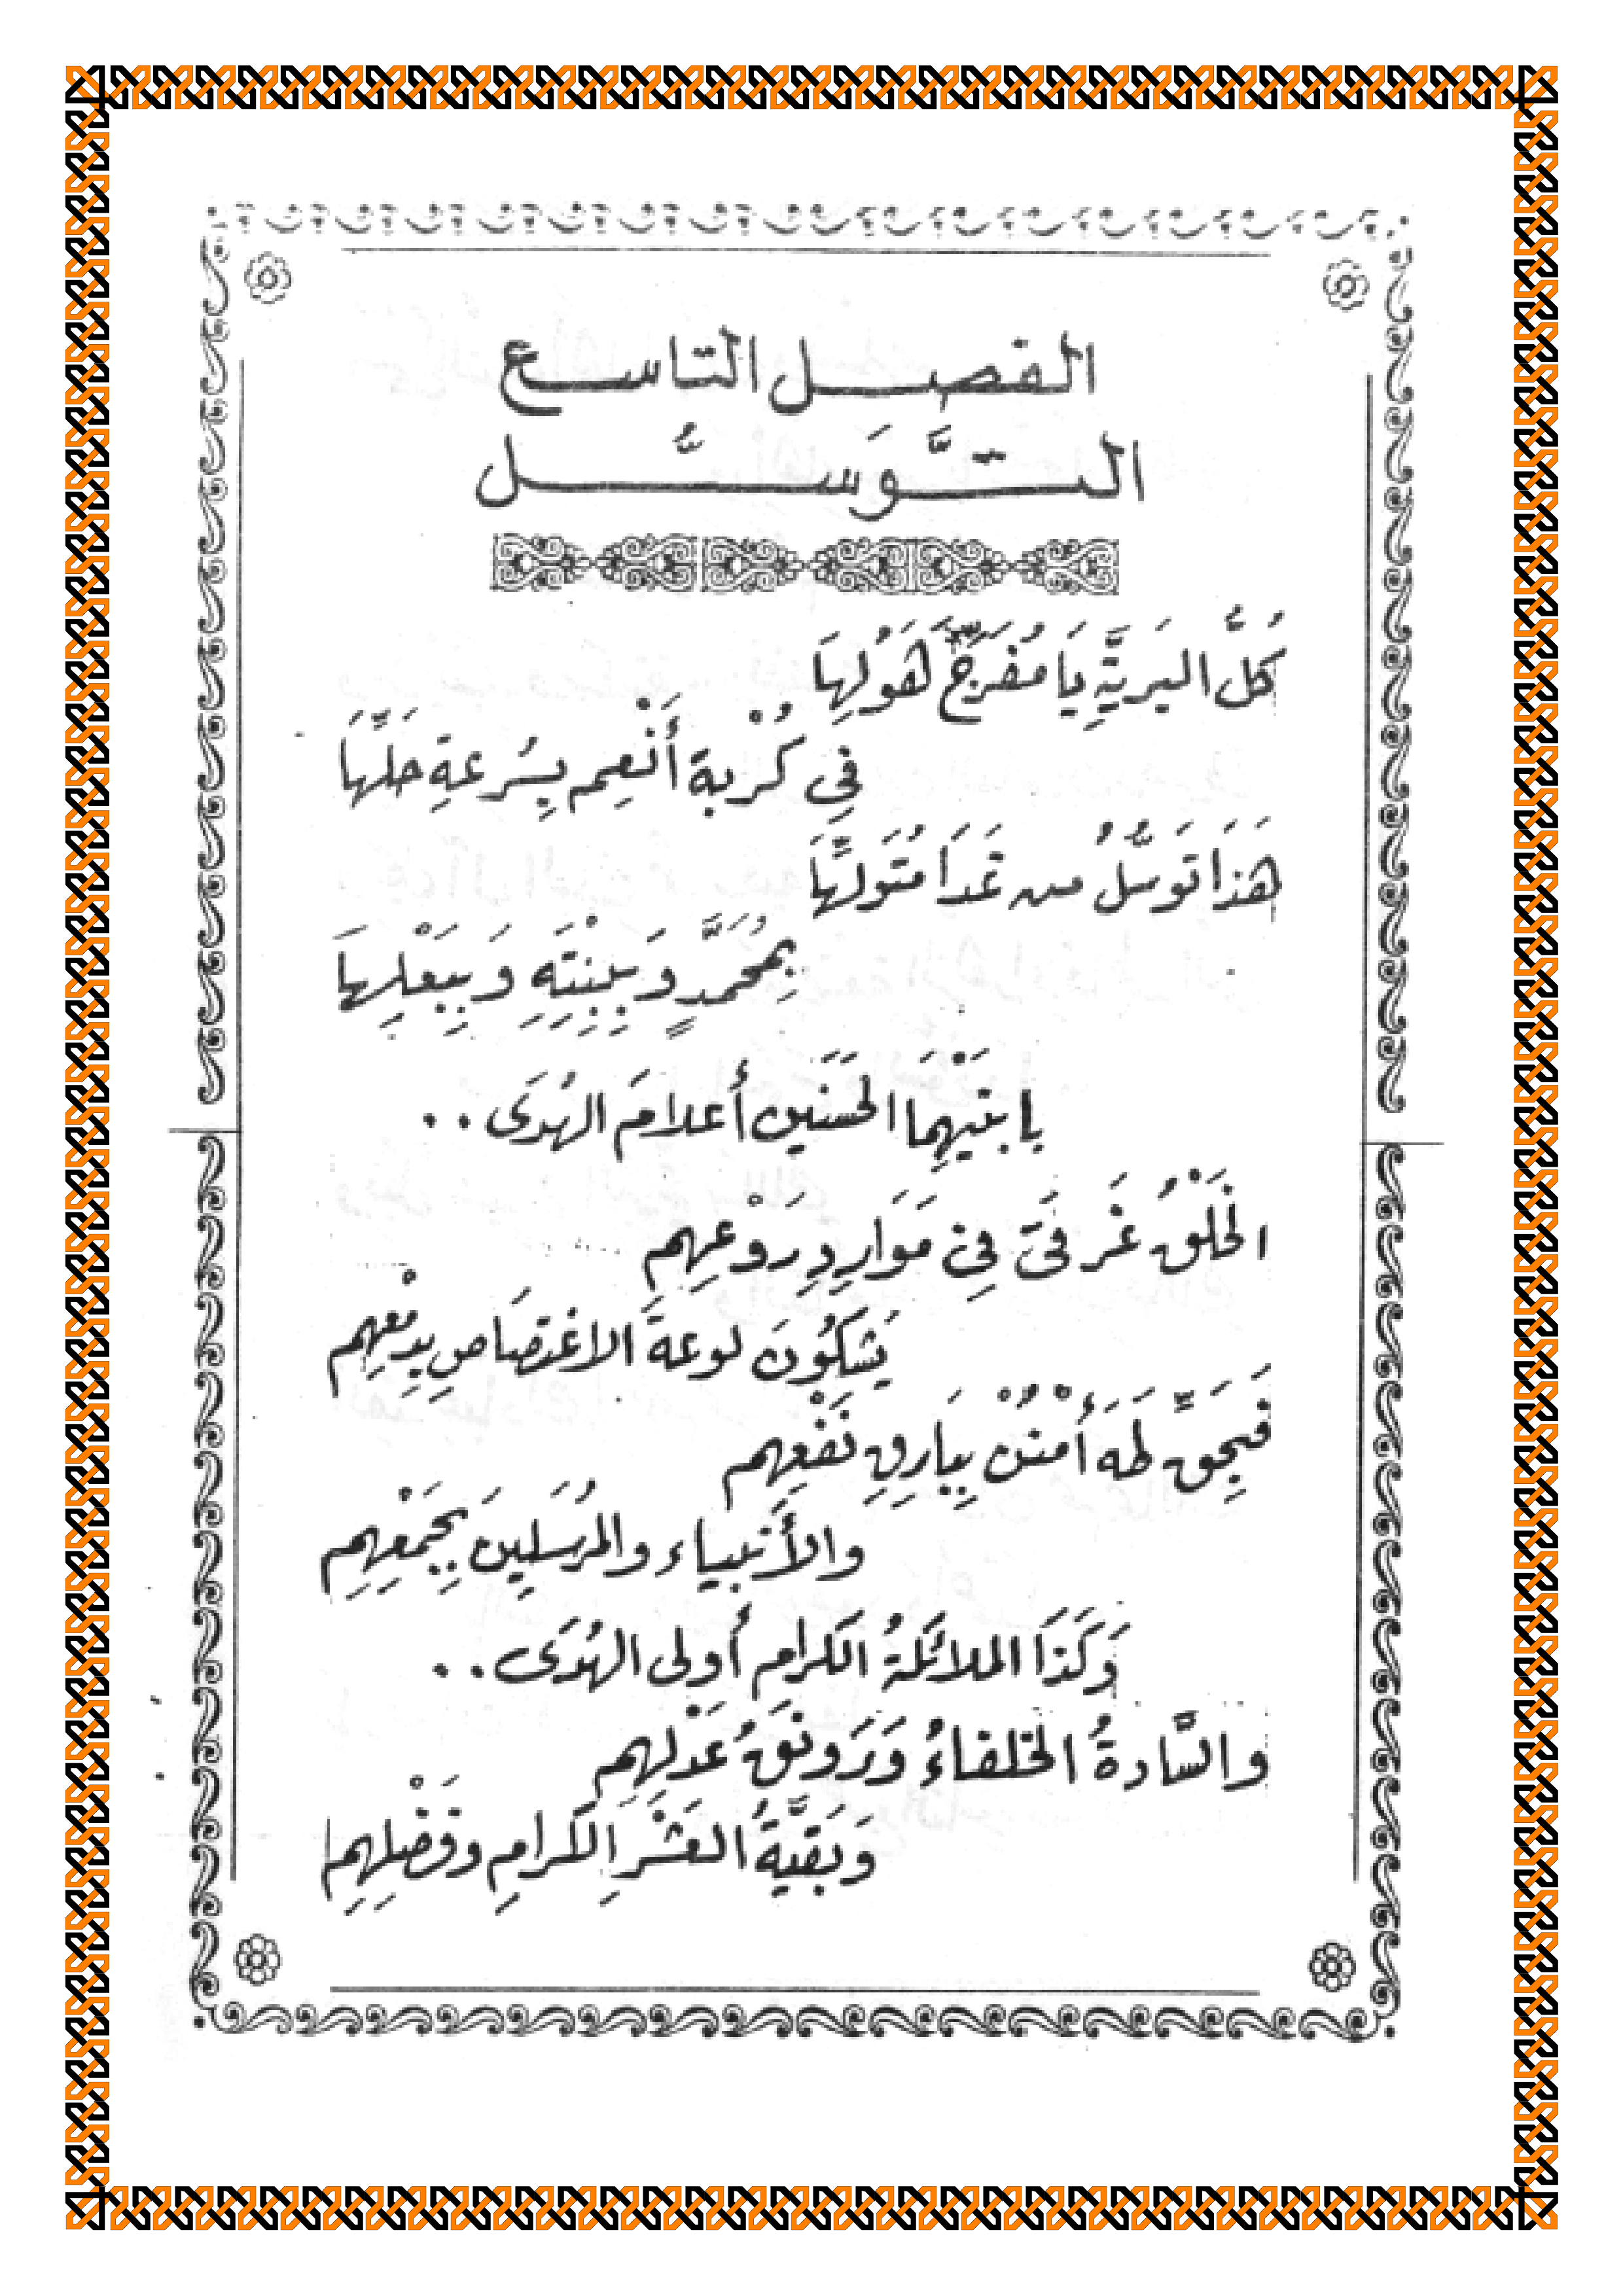 الفصل التاسع
التَّوَسُّل
كُلُّ البَريَّةِ يَا مُفَرِّجَ هَوْلِهَا
فِي كُرْبة أَنْعِم بِسُرعةِ حَلِّهَا
هَذَا تَوَسُّلُ من غَدَا مُتَوَلِّهَا
بِمُحَمَّدٍ وَبِبِنْتِهِ وَبِبَعْلِهَا
بابنَيْهِمَا الحَسَنَين أَعلامَ الهُدَى ..
الخَلْقُ غَرقَى فِي مَوَارِدِ رَوْعِهِم
يَشكُونَ لوعةَ الاغتصَاصِ بِدِمْعِهِم
فَبِحَقِّ طَهَ أُمْنُنْ بِبَارِقِ نَفْعِهِم
والأَنبياء والمُرسَلِينَ بِجَمْعِهِمِ
وَكَذَا الملائكةُ الكَرام أُولى الهُدَى ..
والسَّادةُ الخلفاءُ وَرَونَقُ عَدْلِهِم
وَبَقيَّةُ العَشْرِ الكَرامِ وفَضْلِهِمِ